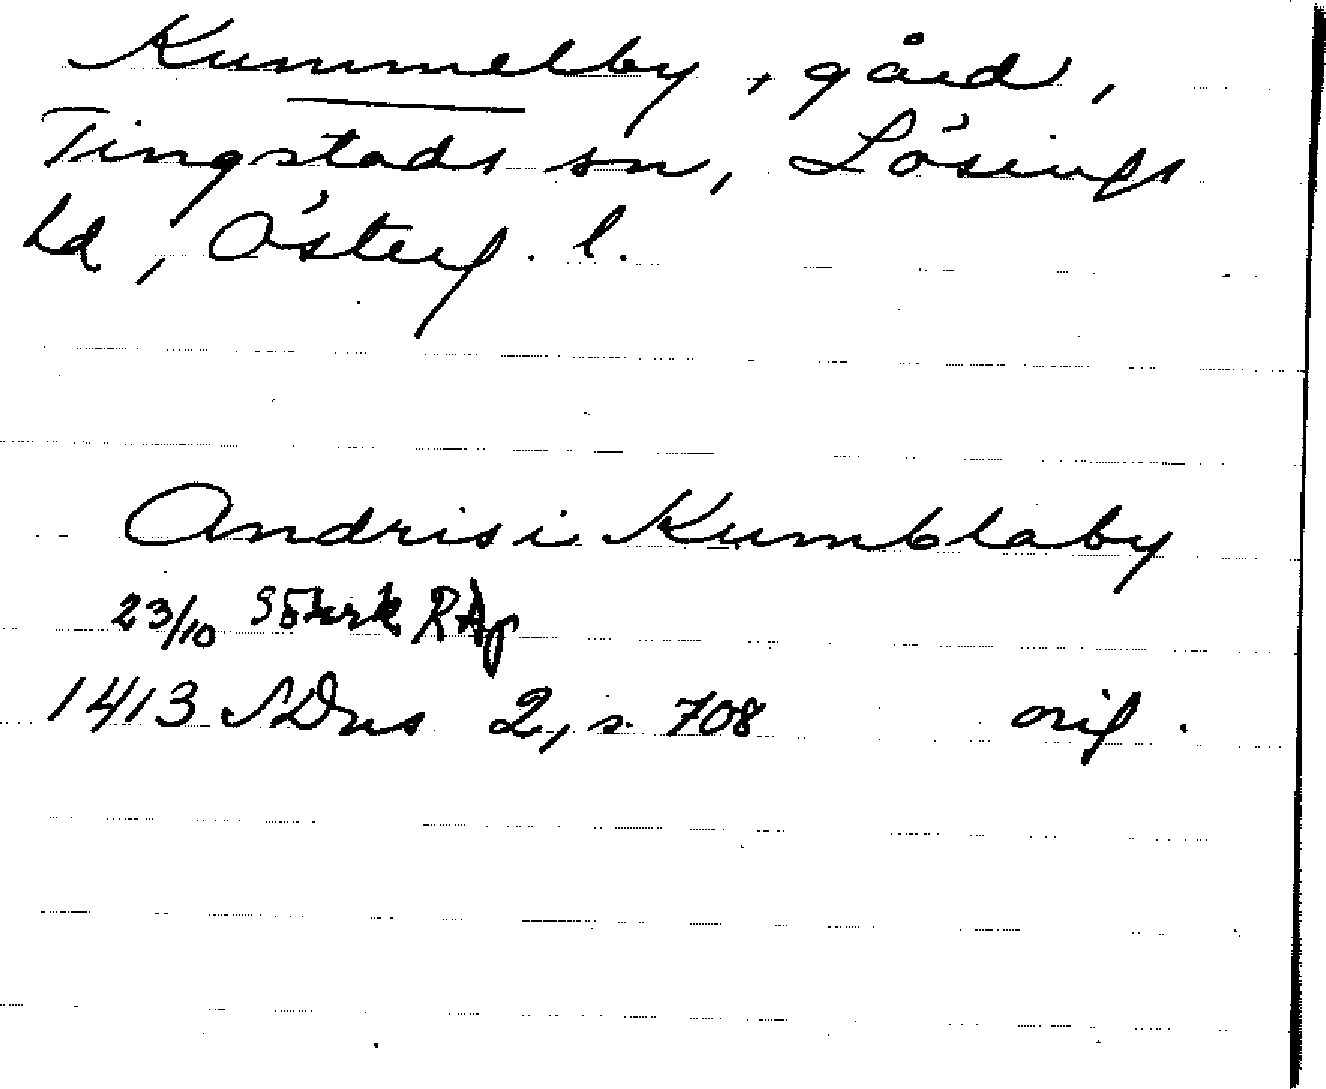 Kummelby, gård,
Tingstads sn, Lösings
hd, Österg. l.
Andris i Kumblaby
23/10 Sthlm RAp
1413 SDns 2, s. 708 orig.